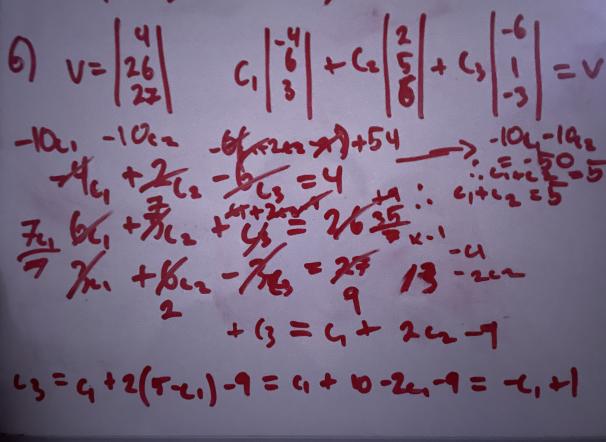 6) V = |4 26 27| C₁ |-4 6 3| + C₂ |2 5 6| + C₃ |-6 1 -3| = V
-10c₁ -10c₂ +54 → -10c₁ -10c₂
-4c₁ + 2c₂ - 6c₃ = 4 = -50
∴ c₁ + c₂ = 5
7c₁/7 6c₁ + 5c₂ + c₃ = 26 35/7 ∴ c₁ + c₂ = 5
3c₁ + 6c₂ - 3c₃ = 27
2 9
+ c₃ = c₁ + 2c₂ - 9
c₃ = c₁ + 2(5-c₁) - 9 = c₁ + 10 - 2c₁ - 9 = -c₁ + 1